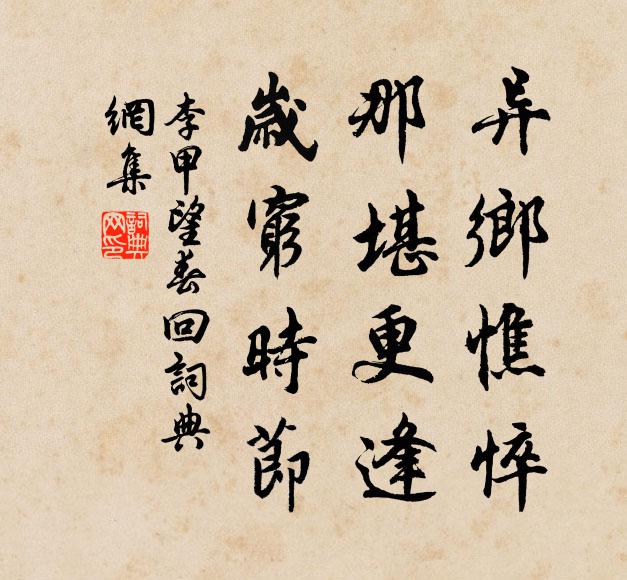 异鄉憔悴
那堪更逢
歲窮時節
李甲望春回詞典
網集
詞典
网印